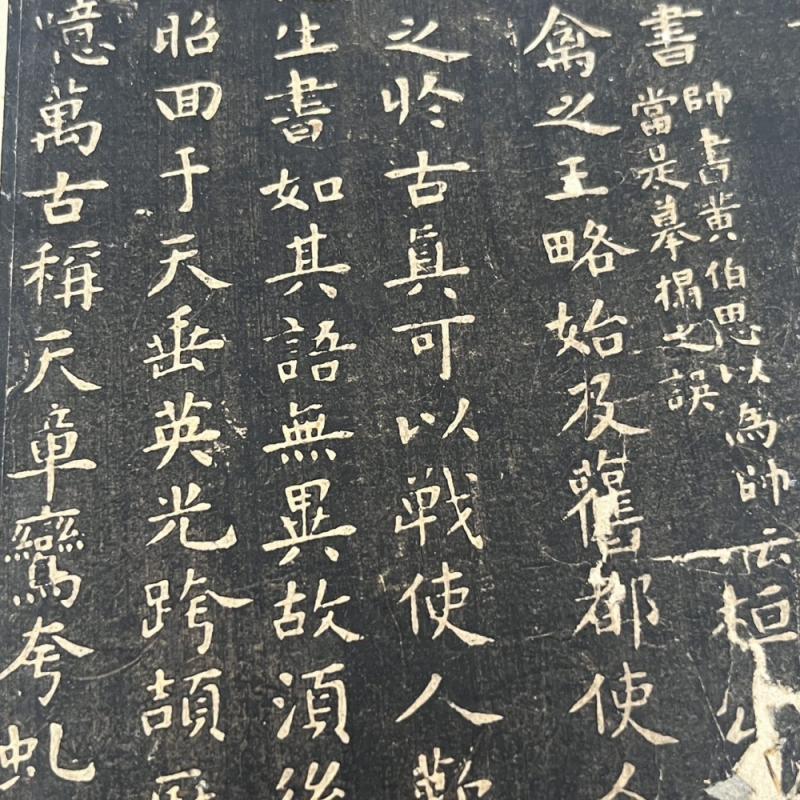 書
帥書黃伯思以為帥
當是摹搨之誤
云桓公
禽之王略始及舊都使人
之於古真可以戰使人歎
生書如其語無異故須後
昭回于天垂英光跨頡歷
噫萬古稱天章鸞夸虬